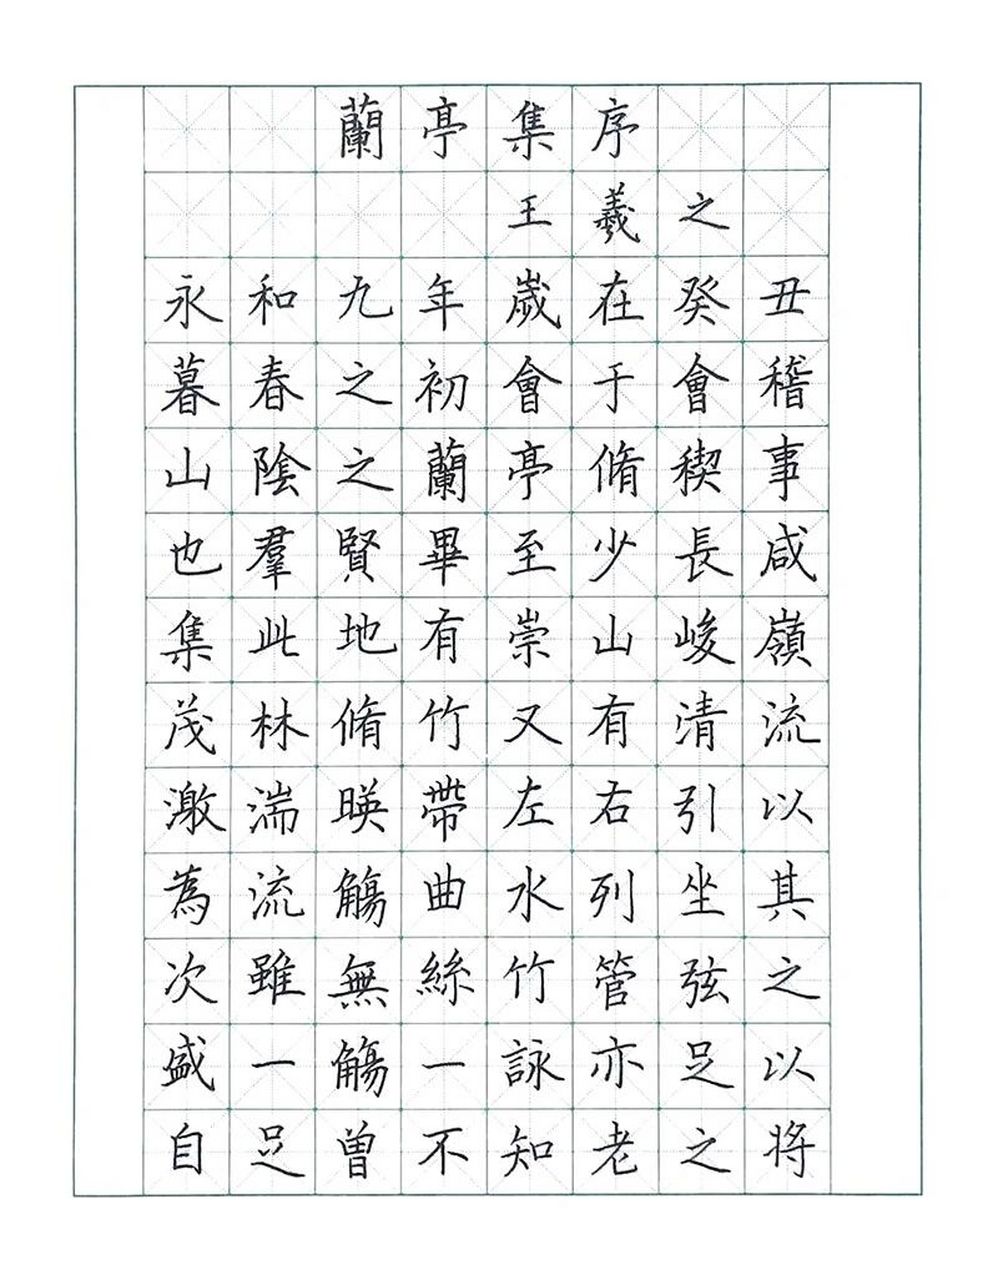 蘭亭集序
王羲之
永和九年歲在癸丑
暮春之初會于會稽
山陰之蘭亭脩稧事
也羣賢畢至少長咸
集此地有崇山峻嶺
茂林脩竹又有清流
激湍暎帶左右引以
為流觴曲水列坐其
次雖無絲竹管弦之
盛一觴一詠亦足以
自足曾不知老之將